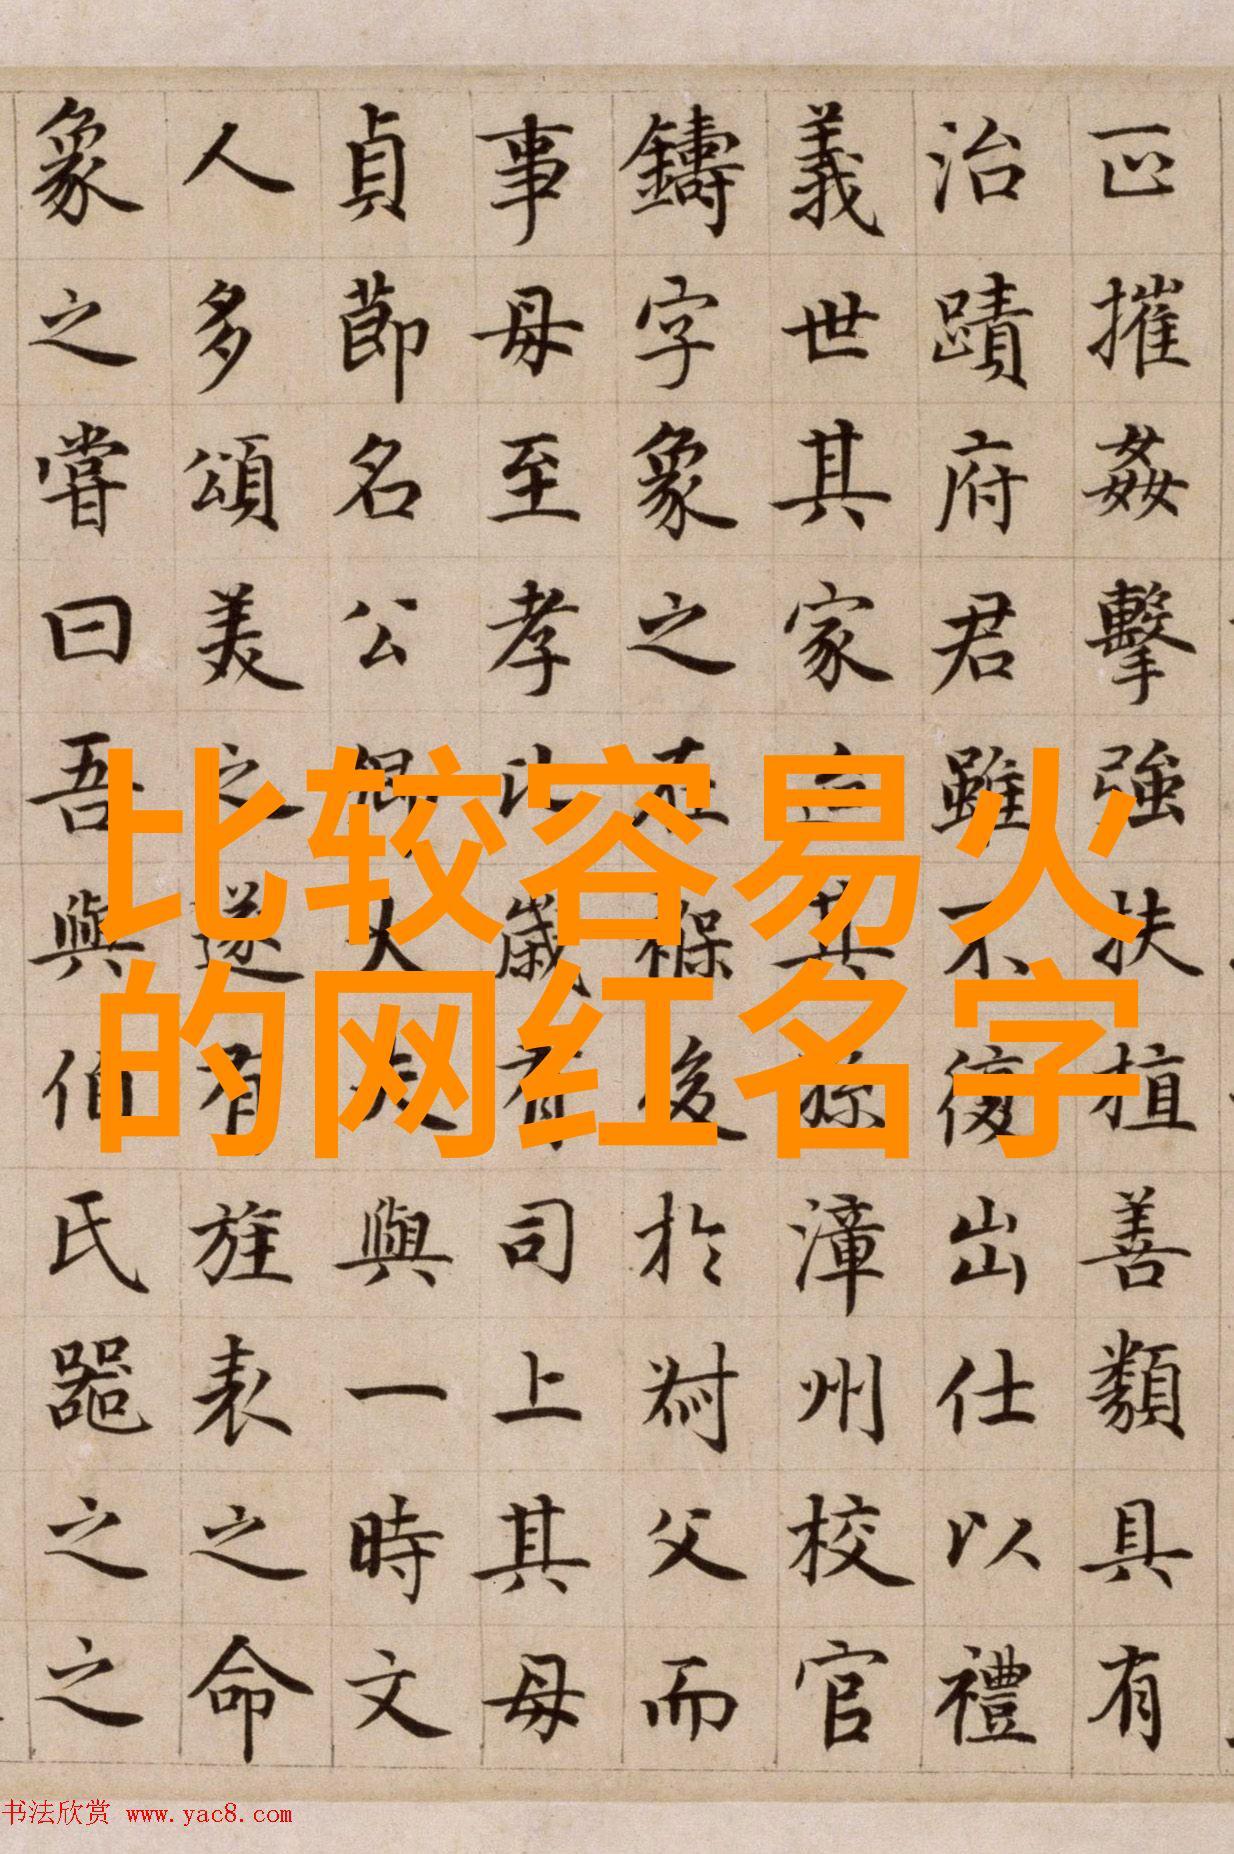 摧姦擊強扶植善類具有
治蹟府君雖不復出仕以禮
義世其家其孫漳州校官
鑄字象之在褓於父而
事母至孝以歲有司上其母
貞節名公卿大夫與一時文
人多頌美之遂有旌表之命
象之嘗曰吾與伯氏噐之之
比较容易火
的网红名字
书法欣赏 www.yac8.com